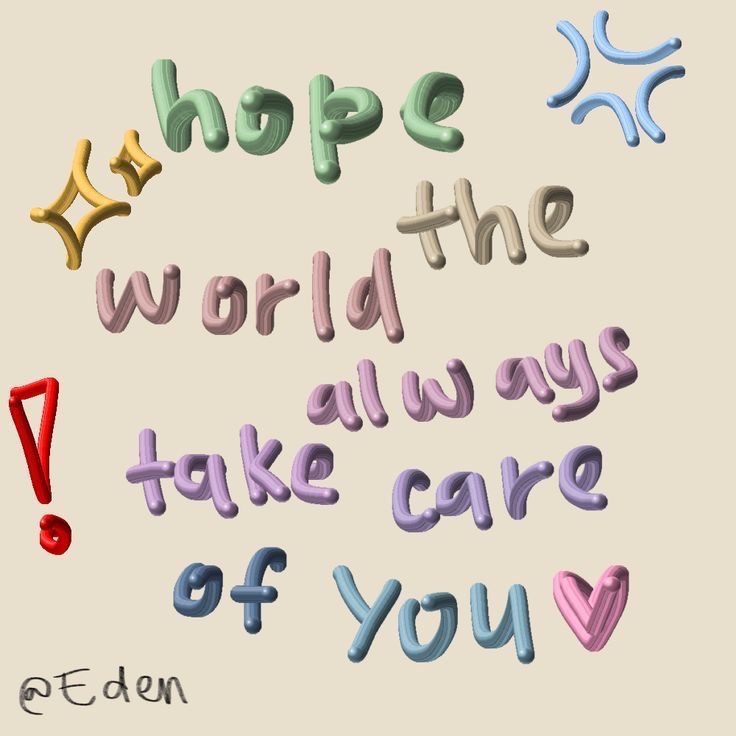 hope
the
world
always
take care
of you
@Eden